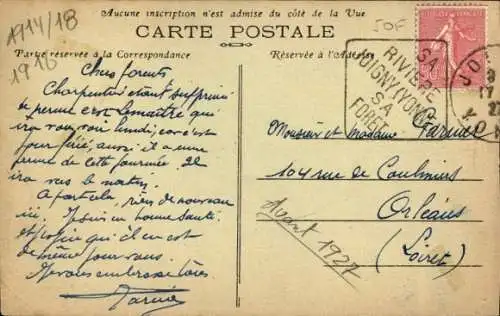 Aucune inscription n'est admise du côté de la Vue
CARTE POSTALE
Partie réservée à la Correspondance
Réservée à l'Adresse
1914/18
1916
JOF
SA
RIVIÈRE
JOIGNY (YONNE)
SA
FORÊT
JO
17
Chers parents
Charpentier étant supprimé
perme c'est Lemaître qui
ira vous voir lundi, car c'est
jour férié, aussi il a une
perme de cette journée. Il
ira vers le matin.
A part cela, rien de nouveau
ici. Je suis en bonne santé
et j'espère qu'il en est
de même pour vous.
Je vous embrasse tous
Monsieur et Madame
104 rue de Coulmiers
Orléans
(Loiret)
Avant 1927